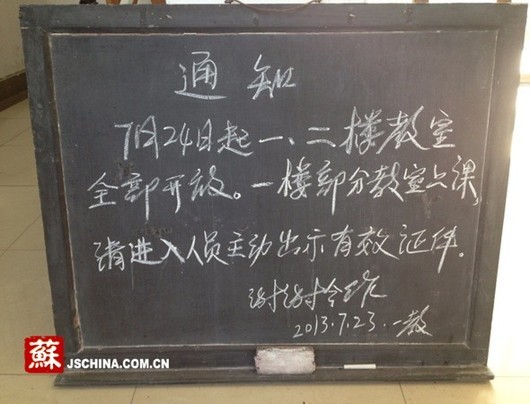 通知
7月24日起一、二楼教室
全部开放。一楼部分教室上课,
请进入人员主动出示有效证件.
谢谢合作
2013.7.23.一教
蘇 JSCHINA.COM.CN